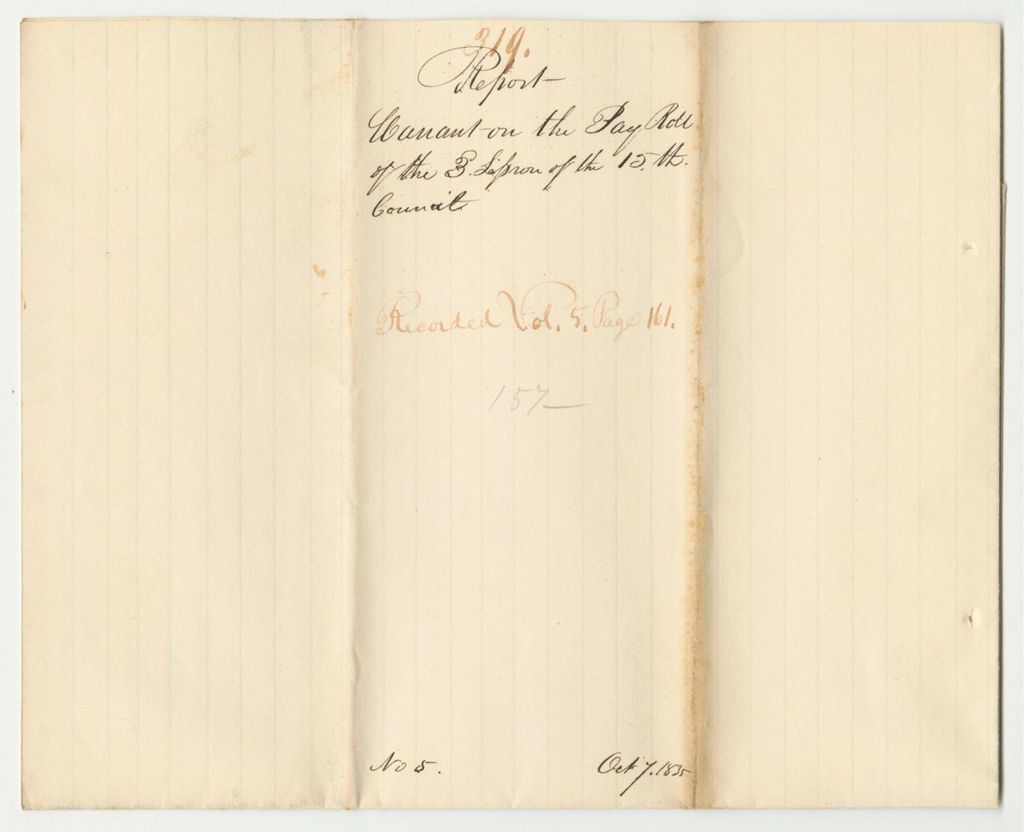 319.
Report
Warrant on the Pay Roll
of the 3. Session of the 15. th.
Council
Recorded Vol. 5. Page 161.
157
No 5.
Oct 7. 1835